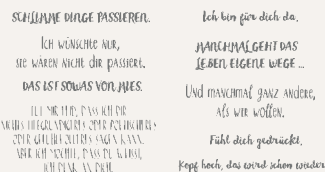 SCHLIMME DINGE PASSIEREN.
Ich wünschte nur,
sie wären nicht dir passiert.
DAS IST SOWAS VON MIES.
ES TUT MIR LEID, DASS ICH DIR
ODER
ODER SAGEN KANN.
ABER ICH MÖCHTE, DASS DU WEISST,
ICH DENK AN DICH.
Ich bin für dich da.
MANCHMAL GEHT DAS
LEBEN EIGENE WEGE ...
Und manchmal ganz andere,
als wir wollen.
Fühl dich gedrückt.
Kopf hoch, das wird schon wieder